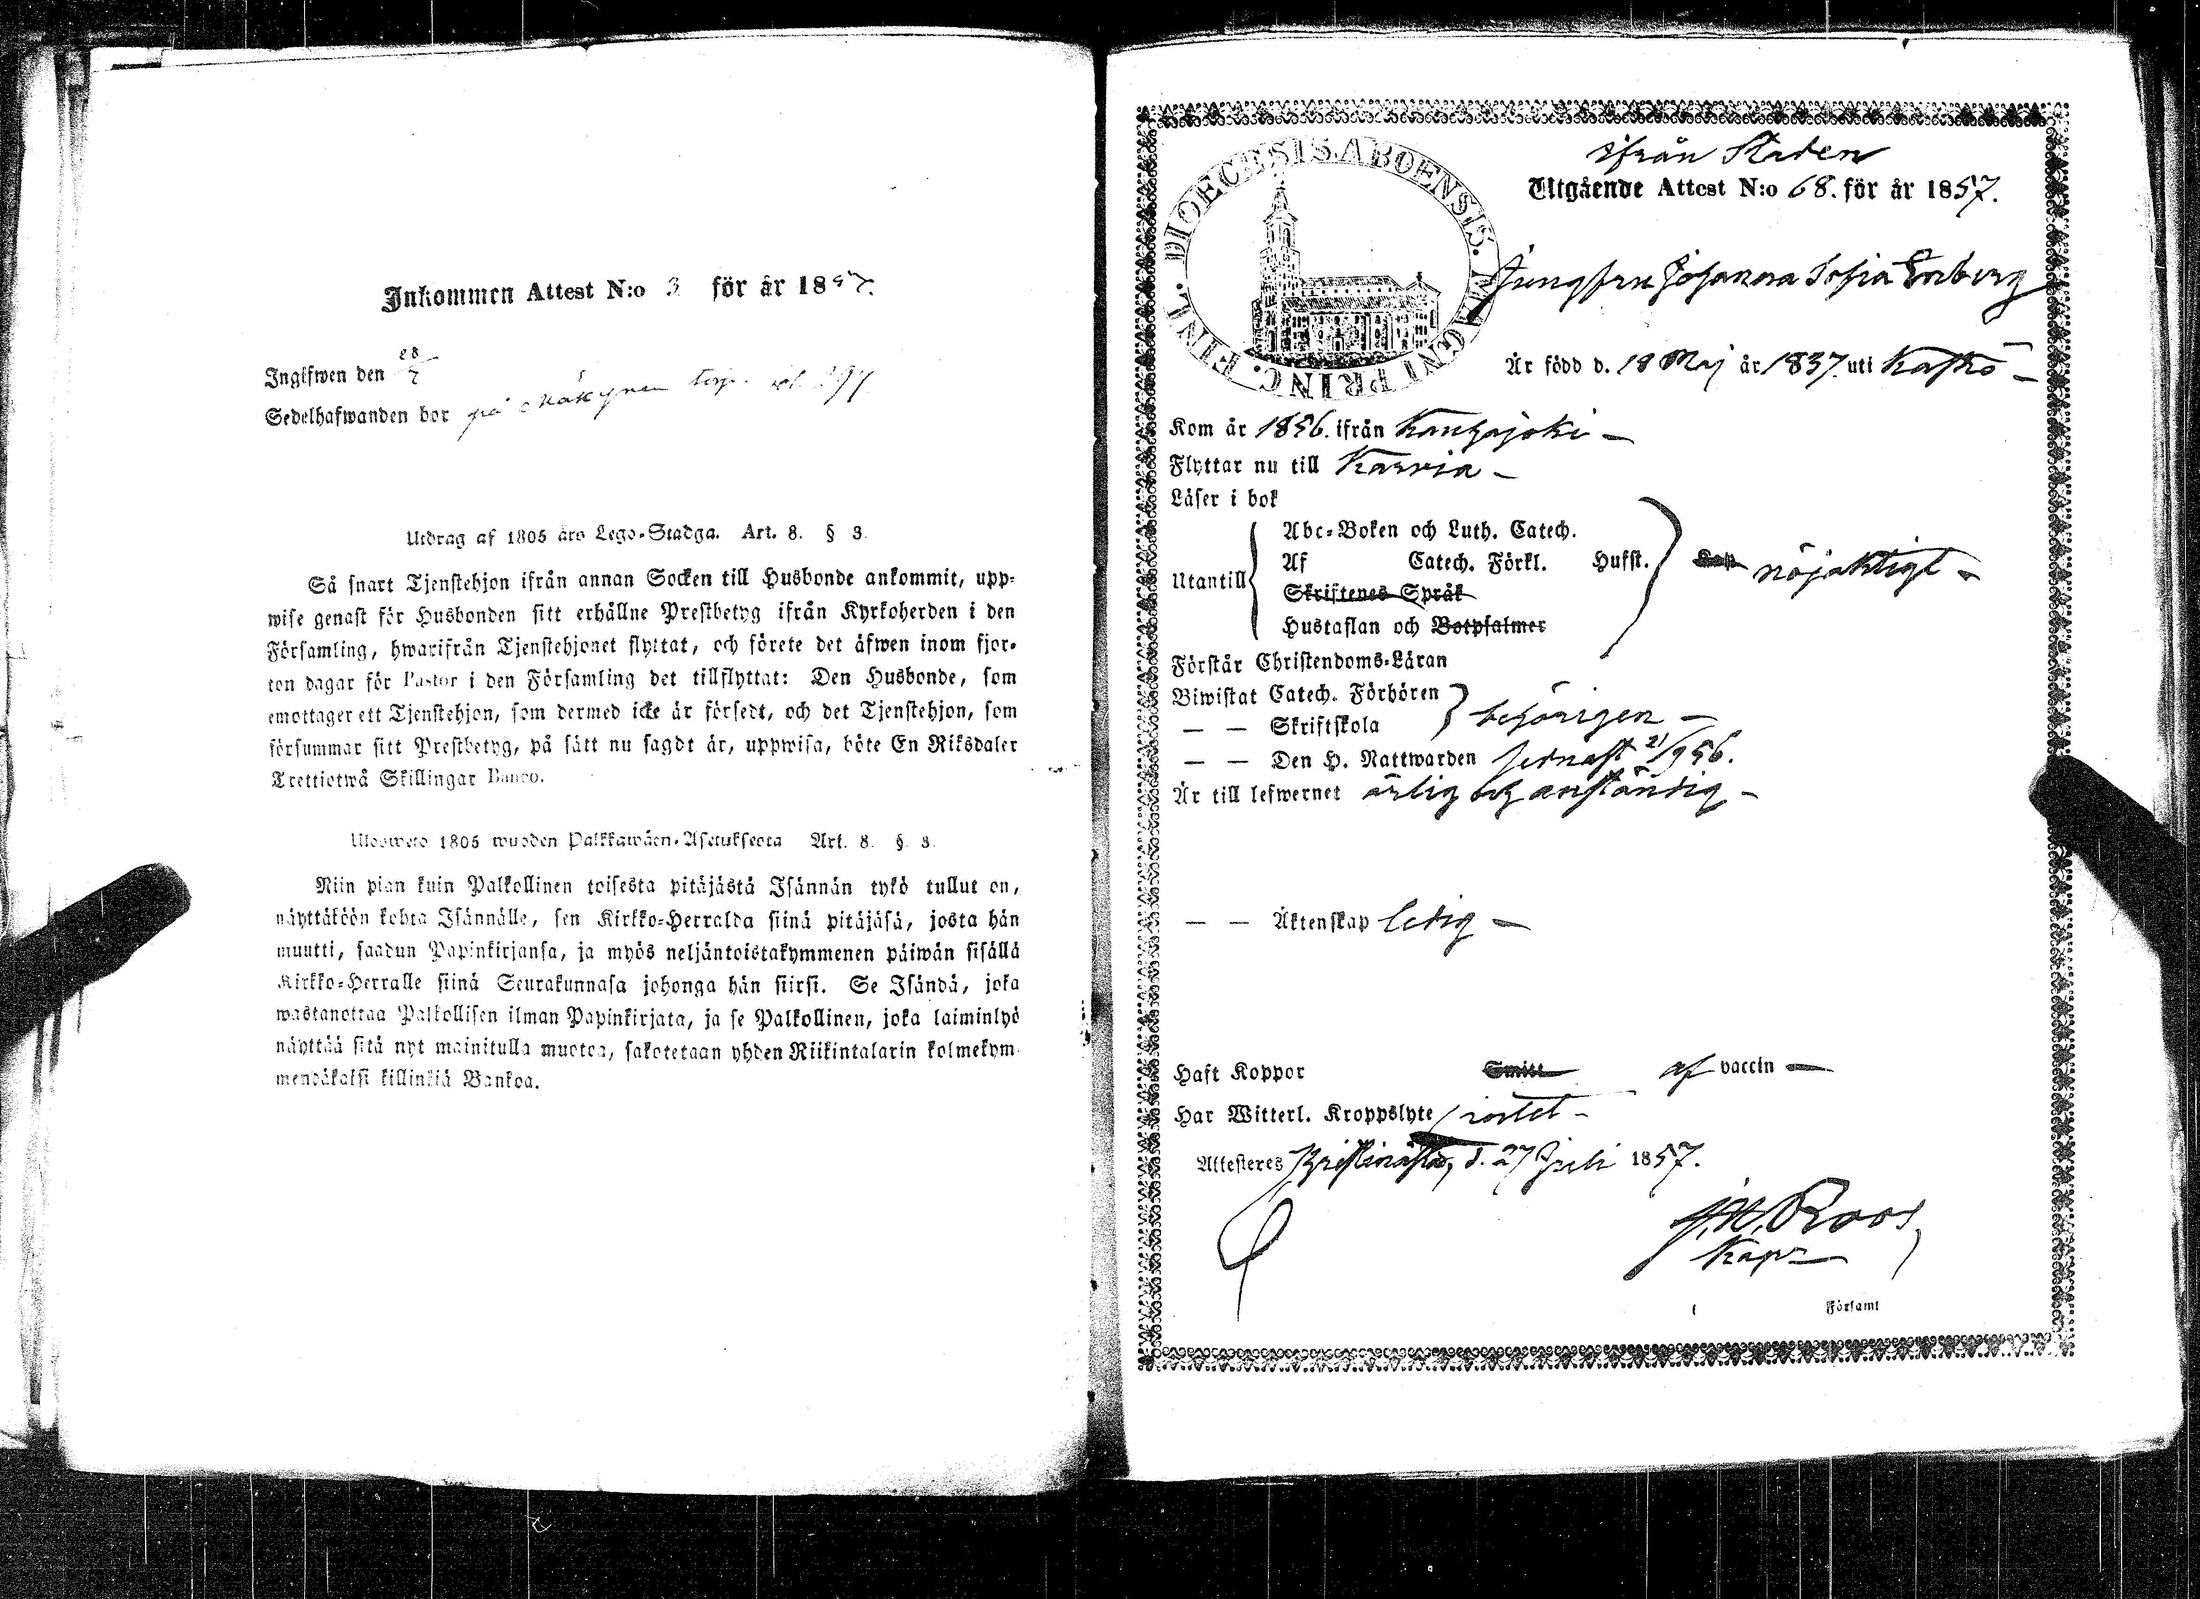 Inkommen Attest N:o 3 för år 1857.
Ingifwen den 28/7
Sedelhafwanden bor på Näkynen torp.
Utdrag af 1805 års Lego-Stadga. Art. 8. § 3.
Så snart Tjenstehjon ifrån annan Socken till Husbonde ankommit, upp-
wise genast för Husbonden sitt erhållne Prestbetyg ifrån Kyrkoherden i den
Församling, hwarifrån Tjenstehjonet flyttat, och förete det äfwen inom fjor-
ton dagar för Pastor i den Församling det tillflyttat: Den Husbonde, som
emottager ett Tjenstehjon, som dermed icke är försedt, och det Tjenstehjon, som
försummar sitt Prestbetyg, på sätt nu sagdt är, uppwisa, böte En Riksdaler
Trettiotwå Skillingar Banco.
Ulosweto 1805 wuoden Palkkawäen-Asetuksesta Art. 8. §. 3.
Niin pian kuin Palkollinen toisesta pitäjästä Isännän tykö tullut on,
näyttäköön kohta Isännälle, sen Kirkko-Herralda siinä pitäjäsä, josta hän
muutti, saadun Papinkirjansa, ja myös neljäntoistakymmenen päiwän sisällä
Kirkko-Herralle siinä Seurakunnasa johonga hän siirsi. Se Isändä, joka
wastanottaa Palkollisen ilman Papinkirjata, ja se Palkollinen, joka laiminlyö
näyttää sitä nyt mainitulla muotoa, sakotetaan yhden Riikintalarin kolmekym-
mendäkaksi killinkiä Bankoa.
DIOECESIS ABOENSIS. MAGNI PRINC. FINL.
ifrån Staden
Utgående Attest N:o 68. för år 1857.
Jungfru Johanna Sofia Enberg
Är född d. 18 Maj år 1837. uti Kaskö
Kom år 1856. ifrån Kauhajoki
Flyttar nu till Karvia
Läser i bok
Utantill Abc-Boken och Luth. Catech.
Af Catech. Förkl. Hufst. nöjaktigt
Skriftenes Språk
Hustaflan och Botpsalmer
Förstår Christendoms-Läran
Biwistat Catech. Förhören
— — Skriftskola behörigen
— — Den H. Nattwarden sednast 21/9 56.
Är till lefwernet ärlig och anständig
— — Äktenskap ledig
Haft Koppor Smitt af vaccin
Har Witterl. Kroppslyte intet
Attesteres Kristinestad, d. 27 Juli 1857.
J. H. Roos
Kapn
i Församl